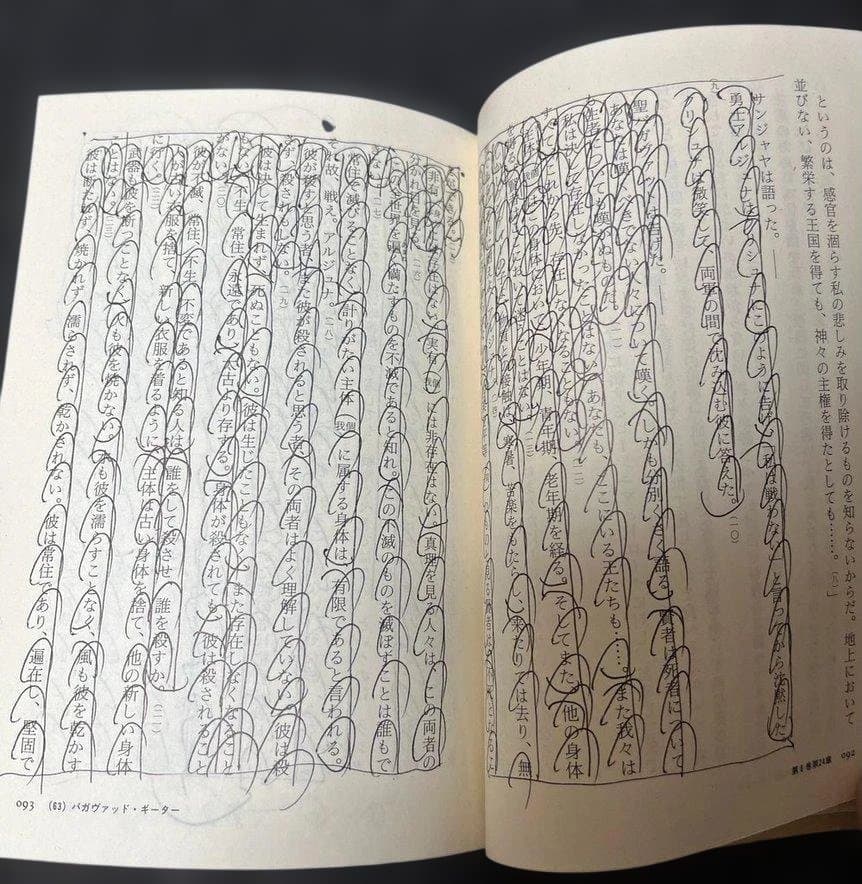 というのは、感官を涸らす私の悲しみを取り除けるものを知らないからだ。地上において
並びない、繁栄する王国を得ても、神々の主権を得たとしても……。(八)」
サンジャヤは語った。――
勇士アルジュナはクリシュナにこのように告げ、「私は戦わない」と言ってから沈黙した。
(九)
クリシュナは微笑して、両軍の間で沈み込む彼に答えた。(一〇)
聖バガヴァットは告げた。――
あなたは嘆くべきでない人々について嘆く。しかも分別くさく語る。賢者は死者についても
生者についても嘆かぬものだ。(一一)
私は決して存在しなかったことはない。あなたも、ここにいる王たちも……。また我々は
すべて、これから先、存在しなくなることもない。(一二)
主体はこの身体において、少年期、青年期、老年期を経る。そしてまた、他の身体
を得る。賢者はここにおいて迷うことはない。(一三)
接触は、寒暑、苦楽をもたらし、来たりては去り、無
第6巻第24章 092
非有には存在はない。実有には非存在はない。真理を見る人々は、この両者の
分かれ目を見る。(一六)
この全世界を遍く満たすものを不滅であると知れ。この不滅のものを滅ぼすことは誰もで
きない。(一七)
常住で滅びることなく、計りがたい主体(個我)に属する身体は、有限であると言われる。
それ故、戦え、アルジュナ。(一八)
彼が殺すと思う者、また彼が殺されると思う者、その両者はよく理解していない。彼は殺
さず、殺されもしない。(一九)
彼は決して生まれず、死ぬこともない。彼は生じたこともなく、また存在しなくなること
もない。不生、常住、永遠であり、太古より存する。身体が殺されても、彼は殺されること
がない。(二〇)
彼が不滅、常住、不生、不変であると知る人は、誰をして殺させ、誰を殺すか。(二一)
人が古い衣服を捨て、新しい衣服を着るように、主体は古い身体を捨て、他の新しい身体
に行く。(二二)
武器も彼を断つことなく、火も彼を焼かない。水も彼を濡らすことなく、風も彼を乾かす
ことはない。(二三)
彼は断たれず、焼かれず、濡らされず、乾かされない。彼は常住であり、遍在し、堅固で
093 (63) バガヴァッド・ギーター